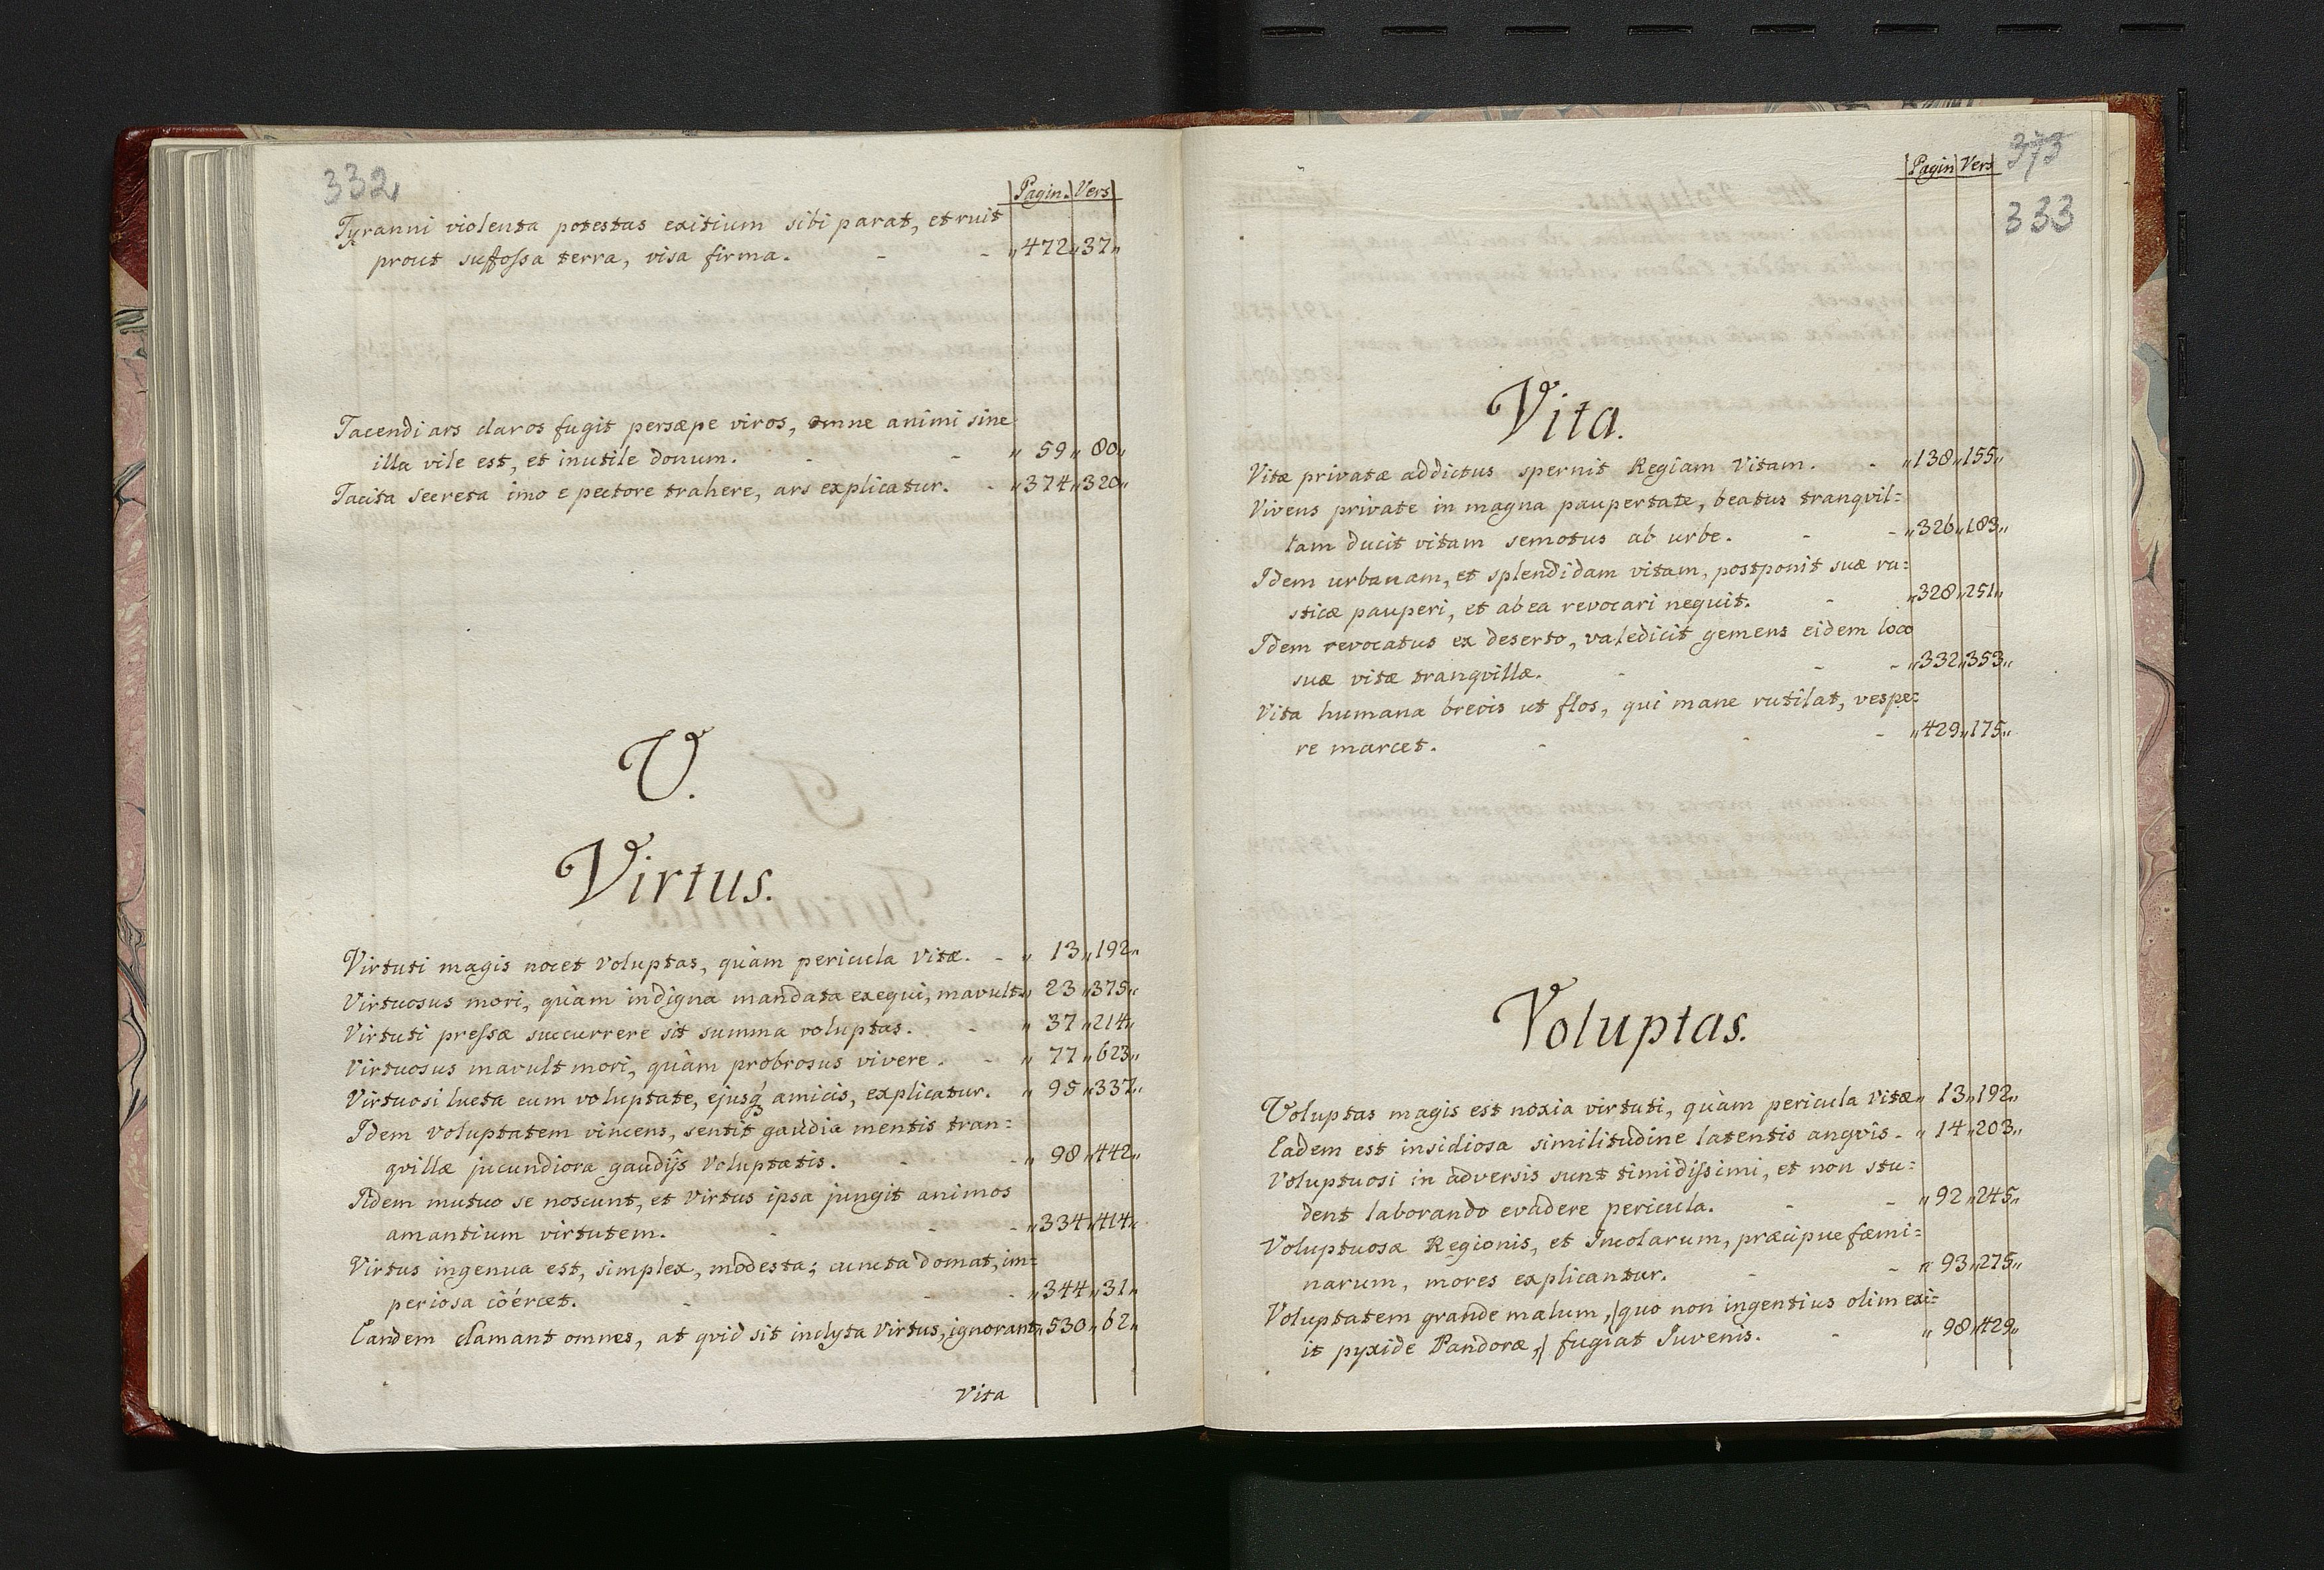 332
Pagin. Vers
Tyranni violenta potestas exitium sibi parat, et ruit
prout suffossa terra, visa firma. - - „472„37„
Tacendi ars claros fugit persæpe viros, omne animi sine
illa vile est, et inutile donum. - - „59„80„
Tacita secreta imo e pectore trahere, ars explicatur. - „374„320„
V.
Virtus.
Virtuti magis nocet voluptas, quàm pericula vitæ. - „13„192„
Virtuosus mori, quàm indigna mandata exequi, mavult. „23„375„
Virtuti pressæ succurrere sit summa voluptas. - „37„214„
Virtuosus mavult mori, quàm probrosus vivere. - „77„623„
Virtuosi lucta cum voluptate, ejusq́ amicis, explicatur. „95„337„
Idem voluptatem vincens, sentit gaudia mentis tran=
qvillæ jucundiora gaudijs voluptatis. - - „98„442„
Iidem mutuo se noscunt, et virtus ipsa jungit animos
amantium virtutem. - - - „334„414„
Virtus ingenua est, simplex, modesta; cuncta domat, im=
periosa cöércet. - - - „344„31„
Eandem clamant omnes, at qvid sit inclyta virtus, ignorant „530„62„
Vita
373
333
Pagin Vers
Vita.
Vitæ privatæ addictus spernit Regiam Vitam. - „138„155„
Vivens private in magna paupertate, beatus tranqvil=
lam ducit vitam semotus ab urbe. - - „326„183„
Idem urbanam, et splendidam vitam, postponit suæ ru=
sticæ pauperi, et ab ea revocari nequit. - „328„251„
Idem revocatus ex deserto, valedicit gemens eidem loco
suæ vitæ tranqvillæ. - - - „332„353„
Vita humana brevis ut flos, qui mane rutilat, vespe=
re marcet. - - - „429„175„
Voluptas.
Voluptas magis est noxia virtuti, quàm pericula vitæ „13„192„
Eadem est insidiosa similitudine latentis angvis. - „14„203„
Voluptuosi in adversis sunt timidissimi, et non stu=
dent laborando evadere pericula. - - „92„245„
Voluptuosæ Regionis, et Incolarum, præcipue fæmi=
narum, mores explicantur. - - „93„275„
Voluptatem grande malum, /quo non ingentius olim exi=
it pyxide Pandoræ,/ fugiat Juvenis. - „98„429„